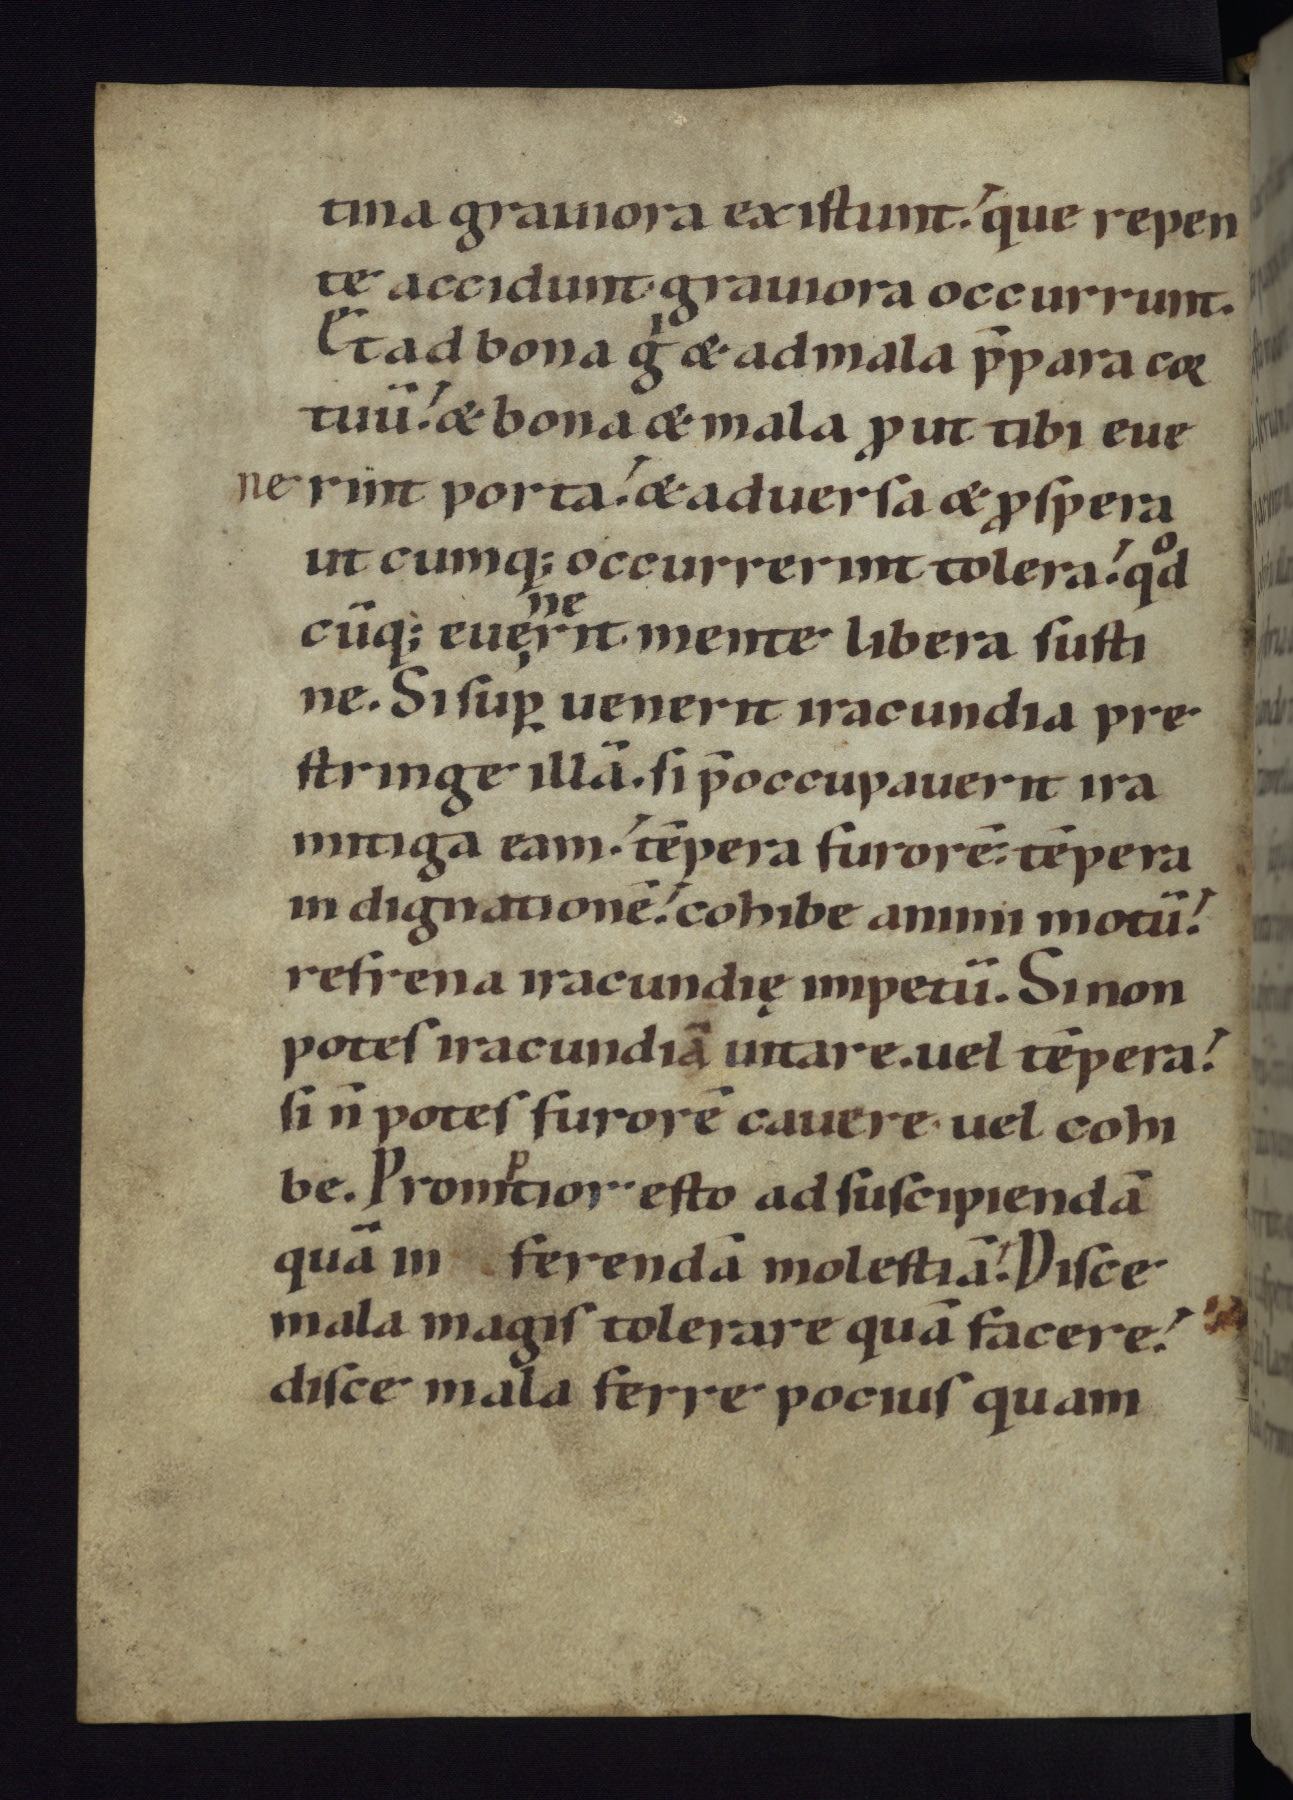 tina grauiora existunt. que repen
te accidunt. grauiora occurrunt.
Et ad bona gͥ & ad mala p̄para cor
tuū. & bona & mala ꝓut tibi eue
nerint porta. & aduersa & ꝓspera
ut cumq; occurrerint tolera. qͦd
cūq; euenerit. mente libera susti
ne. Si suꝑ uenerit iracundia pre
stringe illā. si p̄occupauerit ira
mitiga eam. tēpera furorē. tēpera
indignationē. cohibe animi motū.
refrena iracundię impetū. Si non
potes iracundiā uitare. uel tēpera.
si n̄ potes furorē cauere. uel cohi
be. Promptior esto ad suscipiendā
quā in ferendā molestiā. Disce
mala magis tolerare quā facere.
disce mala ferre pocius quam